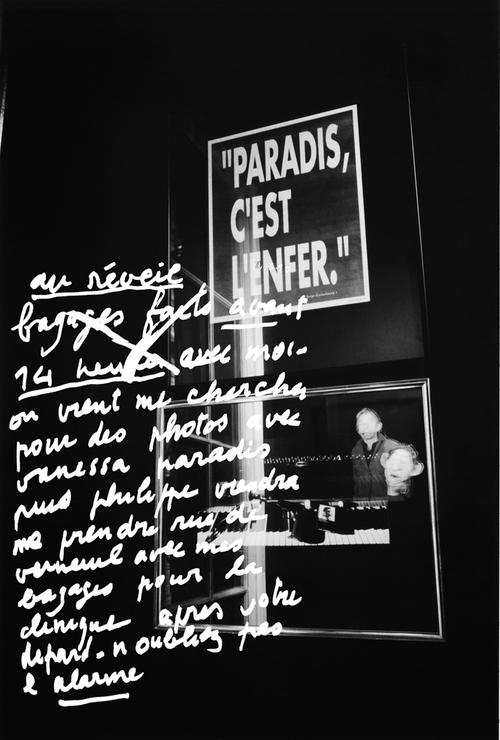 "PARADIS,
C'EST
L'ENFER."
au réveil
bagages faits avant
14 heures avec moi-
on vient me chercher
pour des photos avec
vanessa paradis
puis philippe viendra
me prendre rue de
verneuil avec mes
bagages pour la
clinique apres votre
départ - n oubliez pas
l alarme